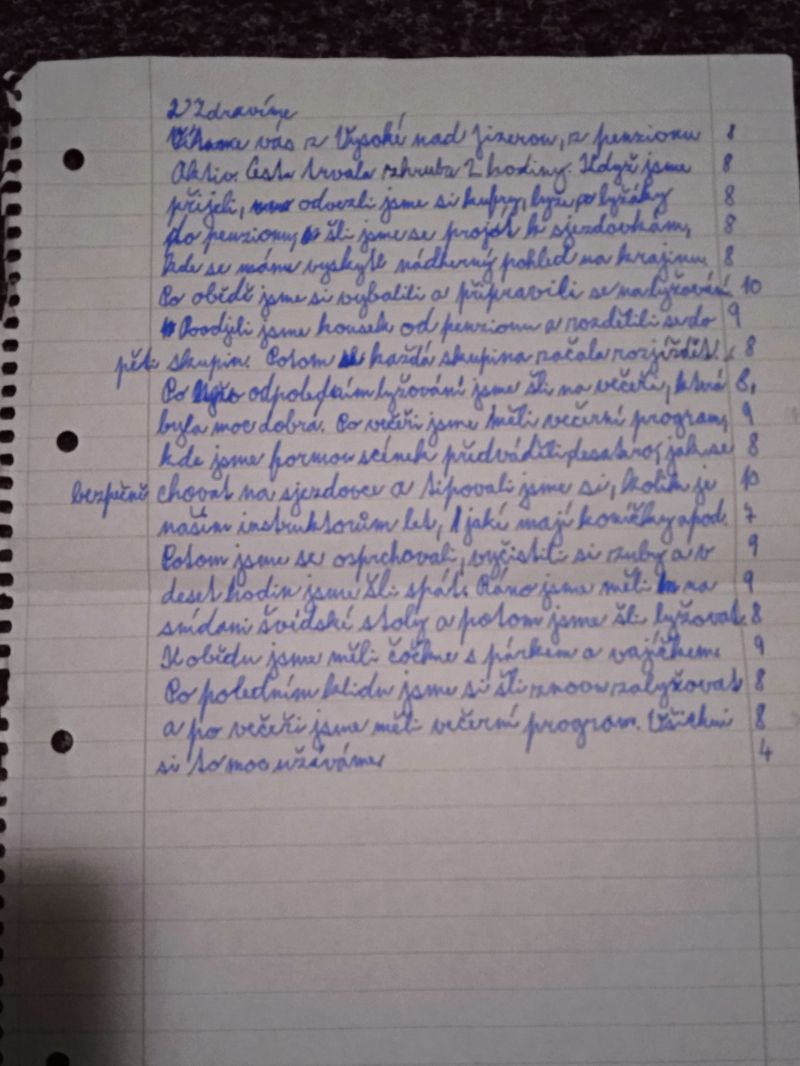 Zdravíme
vás z Vysoké nad Jizerou, z penzionu 8
Aktiv. Cesta trvala zhruba 2 hodiny. Když jsme 8
přijeli, odvezli jsme si kufry, lyže, lyžáky 8
do penzionu, šli jsme se projít k sjezdovkám, 8
kde se máme vyskytl nádherný pohled na krajinu. 8
Po obědě jsme si vybalili a připravili se na lyžování. 10
Poodjeli jsme kousek od penzionu a rozdělili se do 9
pěti skupin. Potom každá skupina začala rozjíždět. 8
Po odpoledním lyžování jsme šli na večeři, která 8,
byla moc dobrá. Po večeři jsme měli večerní program, 9
kde jsme formou scének předváděli desatero, jak se 8
bezpečně chovat na sjezdovce a tipovali jsme si, kolik je 10
našim instruktorům let, jaké mají koníčky apod. 7
Potom jsme se osprchovali, vyčistili si zuby a v 9
deset hodin jsme šli spát. Ráno jsme měli na 9
snídani švédské stoly a potom jsme šli lyžovat. 8
K obědu jsme měli čočku s párkem a vajíčkem. 9
Po poledním klidu jsme si šli znovu zalyžovat 8
a po večeři jsme měli večerní program. Všichni 8
si to moc užíváme. 4